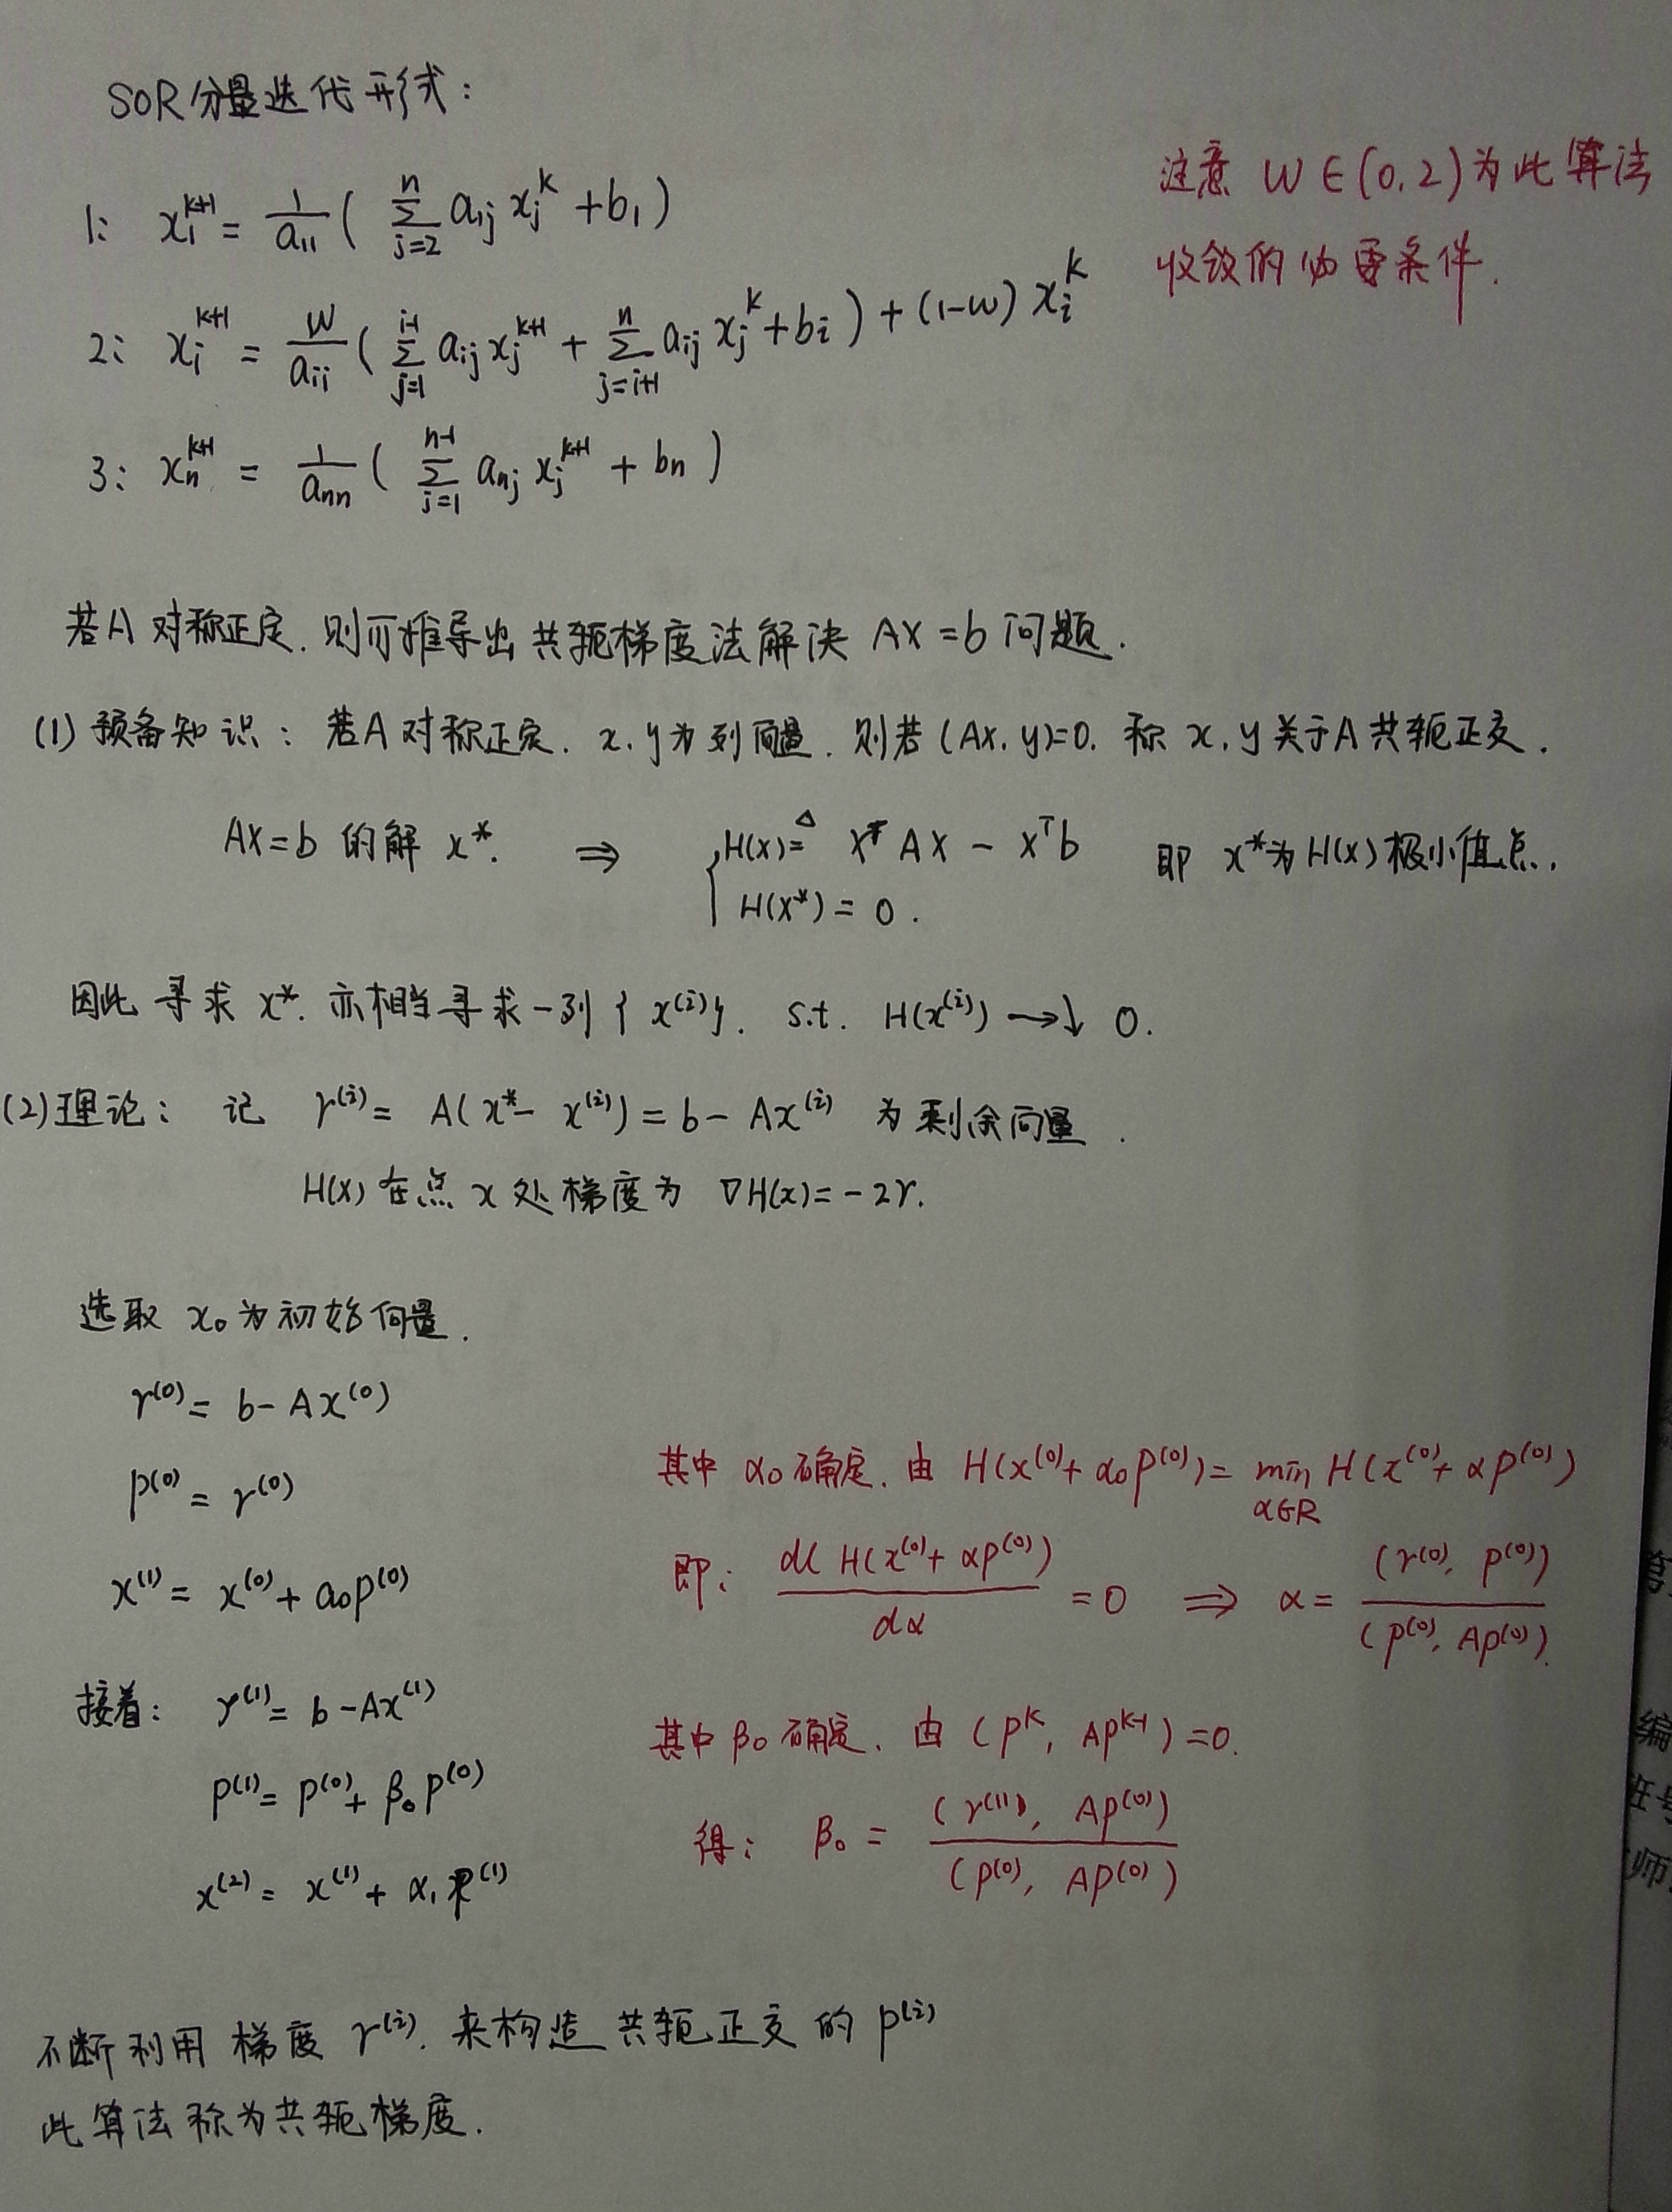 SOR分量迭代形式：
1: x_1^{k+1} = \frac{1}{a_{11}} ( \sum_{j=2}^{n} a_{1j} x_j^k + b_1 )
注意 W ∈ (0,2) 为此算法
收敛的必要条件.
2: x_i^{k+1} = \frac{W}{a_{ii}} ( \sum_{j=1}^{i-1} a_{ij} x_j^{k+1} + \sum_{j=i+1}^{n} a_{ij} x_j^k + b_i ) + (1-W) x_i^k
3: x_n^{k+1} = \frac{1}{a_{nn}} ( \sum_{j=1}^{n-1} a_{nj} x_j^{k+1} + b_n )
若A 对称正定. 则可推导出共轭梯度法解决 AX=b 问题.
(1) 预备知识：若A对称正定. x, y为列向量. 则若(Ax, y)=0. 称 x, y关于A共轭正交.
AX=b 的解 x*. ⇒ { H(x) ≜ X^T AX - X^T b 即 x*为H(x)极小值点.
H(x*) = 0.
因此 寻求 x*. 亦相当寻求一列 { x^{(i)} }. s.t. H(x^{(i)}) →↓ 0.
(2) 理论：记 r^{(i)} = A(x* - x^{(i)}) = b - Ax^{(i)} 为剩余向量.
H(x) 在点 x 处梯度为 ∇H(x) = -2r.
选取 x_0 为初始向量.
r^{(0)} = b - Ax^{(0)}
p^{(0)} = r^{(0)}
其中 α_0 确定. 由 H(x^{(0)} + α_0 p^{(0)}) = \min_{α∈R} H(x^{(0)} + αp^{(0)})
x^{(1)} = x^{(0)} + α_0 p^{(0)}
即：\frac{d( H(x^{(0)} + αp^{(0)})}{dα} = 0 ⇒ α = \frac{(r^{(0)}, p^{(0)})}{(p^{(0)}, Ap^{(0)})}.
接着：r^{(1)} = b - Ax^{(1)}
其中 β_0 确定. 由 (p^k, Ap^{k-1}) = 0.
p^{(1)} = p^{(0)} + β_0 p^{(0)}
得：β_0 = \frac{(r^{(1)}, Ap^{(0)})}{(p^{(0)}, Ap^{(0)})}
x^{(2)} = x^{(1)} + α_1 p^{(1)}
不断利用 梯度 r^{(i)}. 来构造 共轭正交 的 p^{(i)}
此算法称为共轭梯度.
编
师